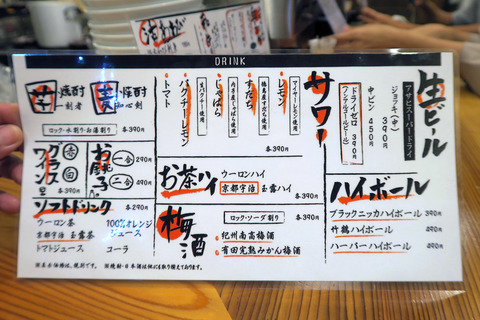 DRINK
生ビール
アサヒスーパードライ
ジョッキ(中) 390円
中ビン 450円
ドライゼロ 390円
(ノンアルコールビール)
ハイボール
ブラックニッカハイボール 390円
竹鶴ハイボール 490円
ハーバーハイボール 490円
サワー
レモン
マイヤーレモン使用
すだち
徳島産すだち使用
じゃばら
パクチーレモン
生パクチー使用
トマト
各390円
お茶ハイ
ウーロンハイ
京都宇治 玉露ハイ
各390円
梅酒
ロック・ソーダ割り
各390円
紀州南高梅酒
有田完熟みかん梅酒
焼酎
一刻者
焼酎
ロック・水割り・お湯割り
各390円
グラスワイン
赤 白
各390円
お銚子
一合 290円
二合 490円
ソフトドリンク
各290円
ウーロン茶
100%オレンジジュース
京都宇治 玉露茶
トマトジュース
コーラ
※表示価格は、税別です。